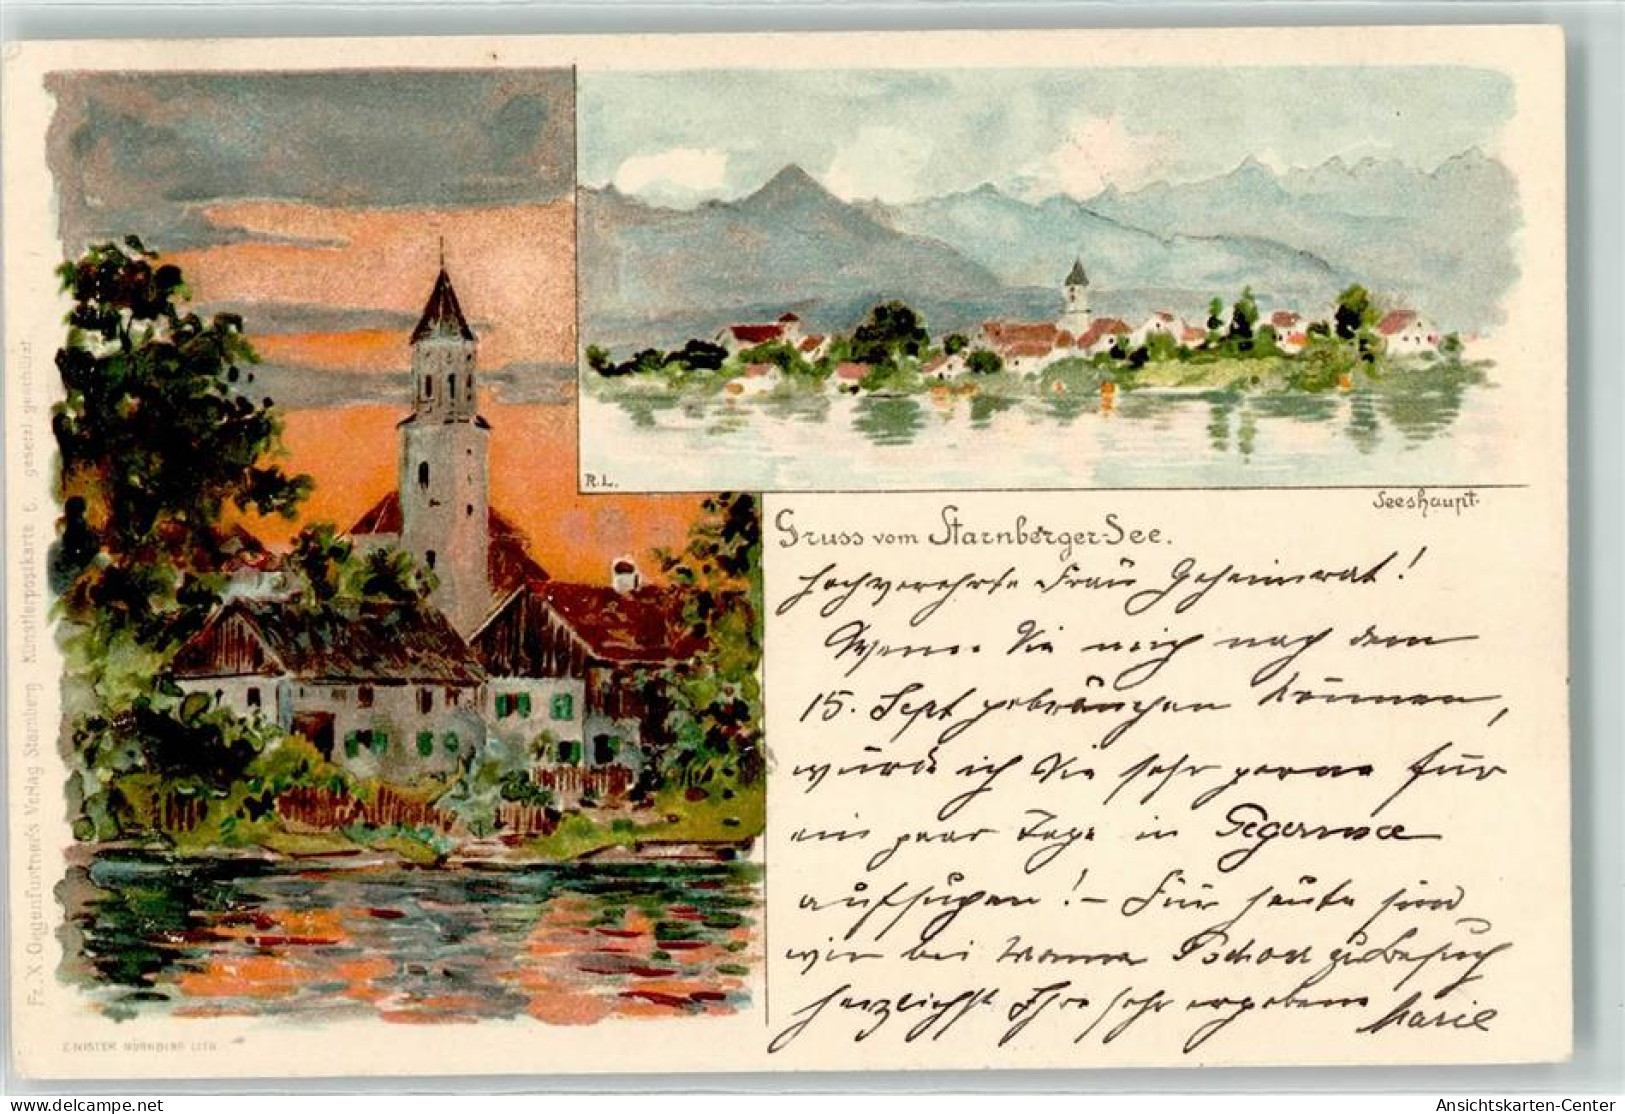 R.L.
Seeshaupt.
Gruss vom Starnberger-See.
Hochverehrte Frau Geheimrat!
Wenn Sie mich nach dem
15. Sept gebrauchen können,
würde ich Sie sehr gerne für
ein paar Tage in Tegernsee
aufsuchen! – Für heute sind
wir bei Pschorr zu Besuch
herzlichst Ihre sehr ergebene Marie
Fr. X. Gegenfurtner's Verlag Starnberg Künstlerpostkarte 6. gesetzl. geschützt.
E. NISTER NÜRNBERG LITH.
oldthing.de
Ansichtskarten-Center